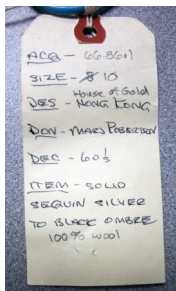 ACQ - 66.86.1
SIZE - 8 10
House of Gold
DES - HONG KONG
DON - MARJ ROBERTSON
DEC - 60s
ITEM - SOLID
SEQUIN SILVER
TO BLACK OMBRE
100% wool